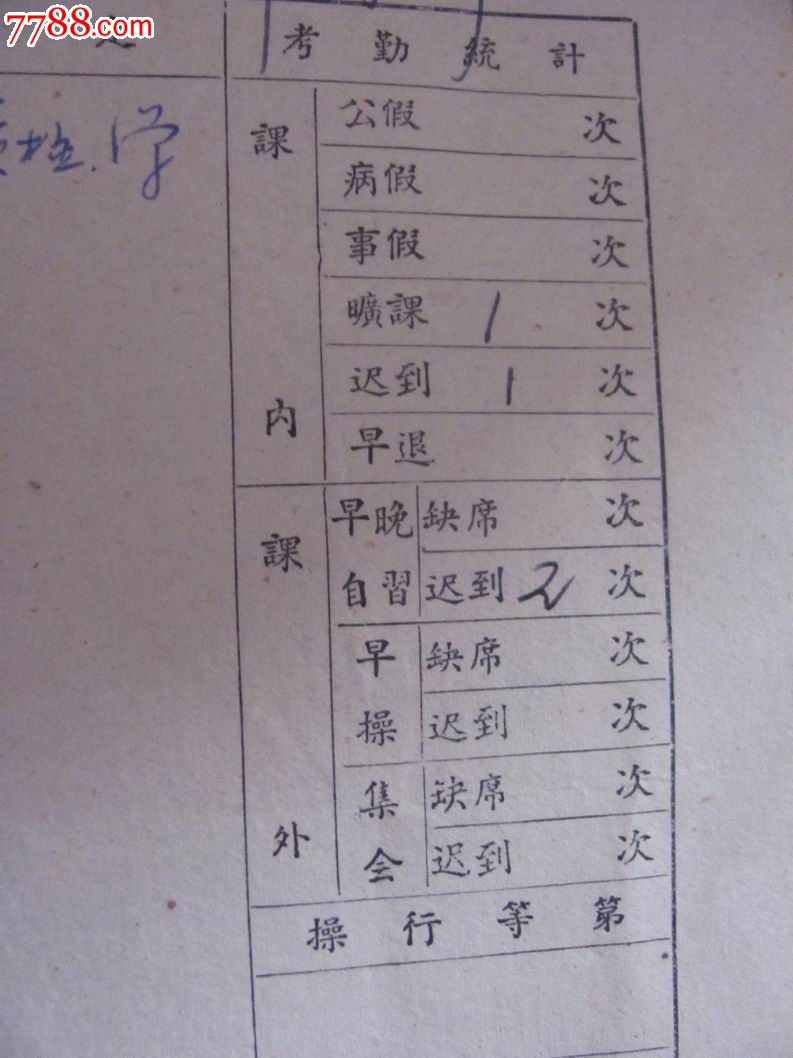 7788.com
中国收藏热线
考勤統計
課內
公假 次
病假 次
事假 次
曠課 1 次
迟到 1 次
早退 次
課外
早晚自習
缺席 次
迟到 2 次
早操
缺席 次
迟到 次
集会
缺席 次
迟到 次
操行等第